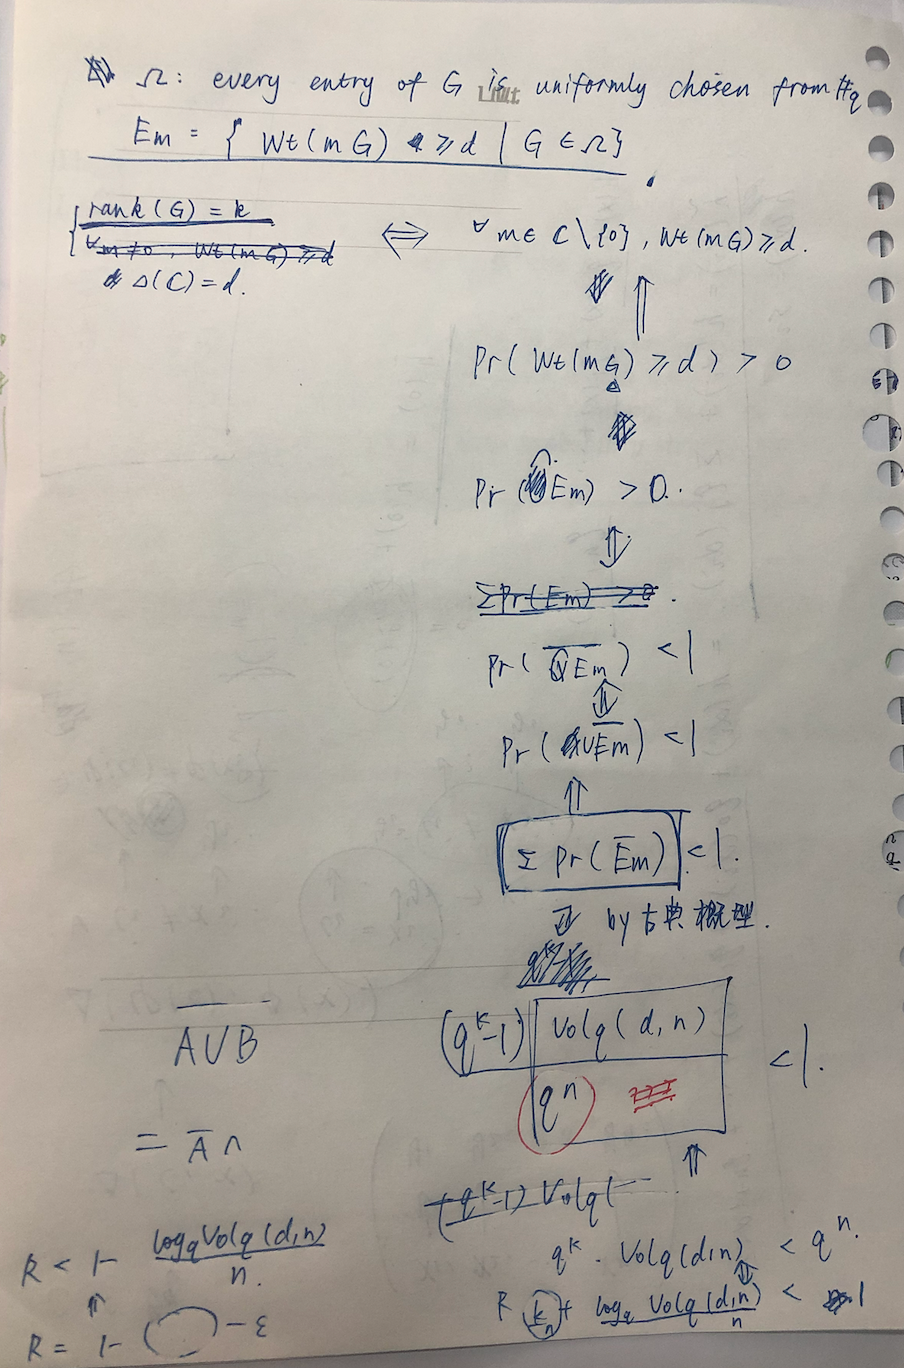 Ω: every entry of G is uniformly chosen from Fq
Em = { Wt(mG) ≥ d | G ∈ Ω}
rank(G) = k
∀m≠0, Wt(mG) ≥ d
Δ(C) = d.
⇔ ∀ m ∈ C \ {0}, Wt(mG) ≥ d.
⇑
Pr( Wt(mG) ≥ d ) > 0
Pr ( ∩ Em) > 0.
⇕
ΣPr(Em) > 0.
Pr( \overline{∩ Em} ) < 1
⇕
Pr( ∪ \overline{Em} ) < 1
⇑
Σ Pr( \overline{Em} ) < 1.
⇓ by 古典概型.
(q^k-1) Volq(d,n) / q^n < 1.
⇑
(q^k-1) Volq(
q^k · Volq(d,n) < q^n.
⇕
R k/n + logq Volq(d,n) / n < 1
\overline{A∪B}
= \overline{A} ∩
R < 1 - logq Volq(d,n) / n.
⇑
R = 1 - ( ) - ε